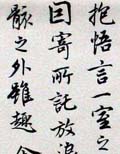 抱悟言一室之
因寄所託放浪
骸之外雖趣